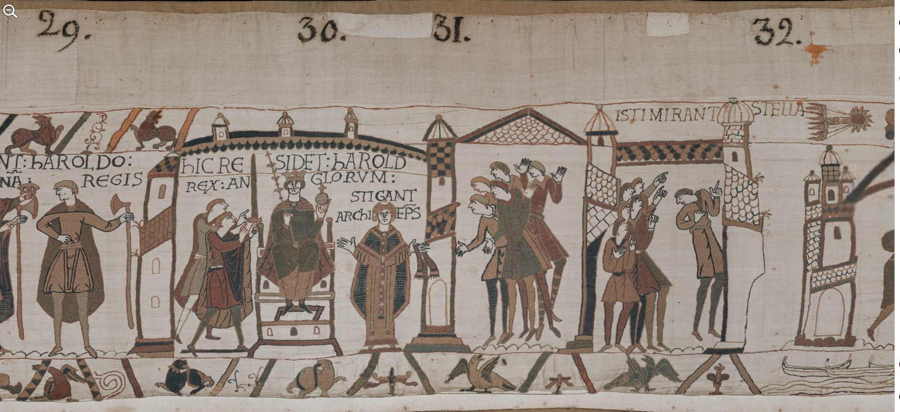 29.
30.
31.
32.
NT: hAROLDO:
NA
REGIS
hIC RE
SIDET: hAROLD
REX: AN
GLORVM:
STIGANT
ARChI
EP̄S
ISTI MIRANT
STELLA